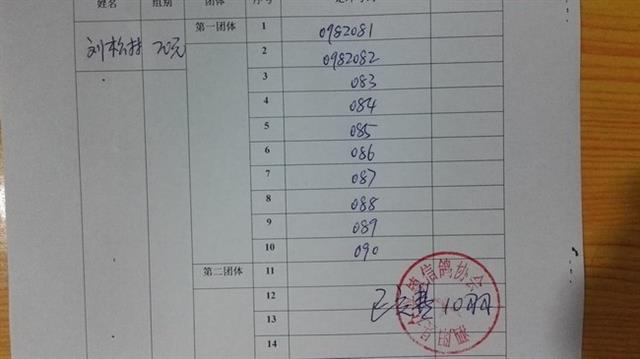 姓名 组别 团体 序号
刘松林 20元 第一团体 1 0982081
2 0982082
3 083
4 084
5 085
6 086
7 087
8 088
9 089
10 090
第二团体 11
12 已交费 10羽
13
14
信鸽协会